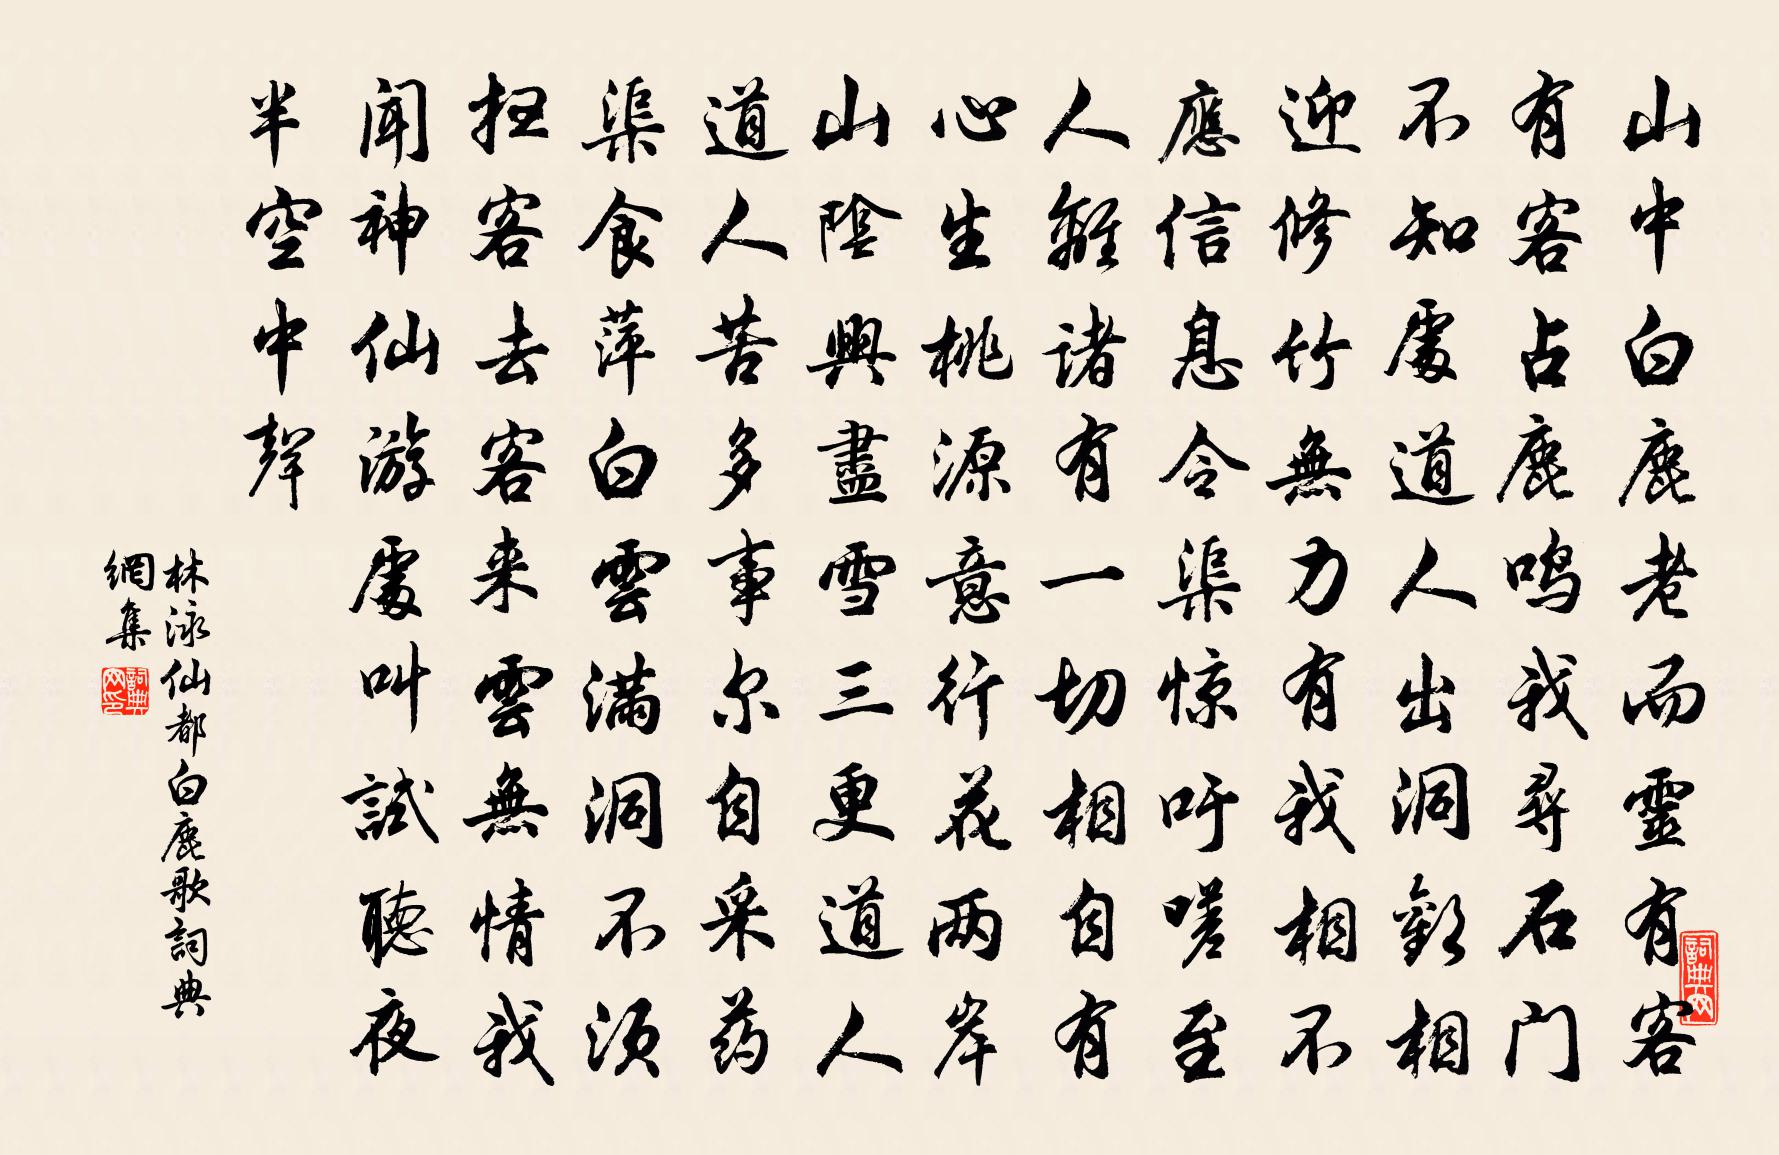 山中白鹿老而靈有客
有客占鹿鸣我尋石门
不知處道人出洞歡相
迎修竹無力有我相不
應信息令渠惊吁嗟至
人離諸有一切相自有
心生桃源意行花两岸
山陰興盡雪三更道人
道人苦多事尔自采药
渠食萍白雲满洞不须
扭客去客来雲無情我
闻神仙游處叫試聽夜
半空中聲
林泳仙都白鹿歌詞典
網集
詞典网
詞典网印